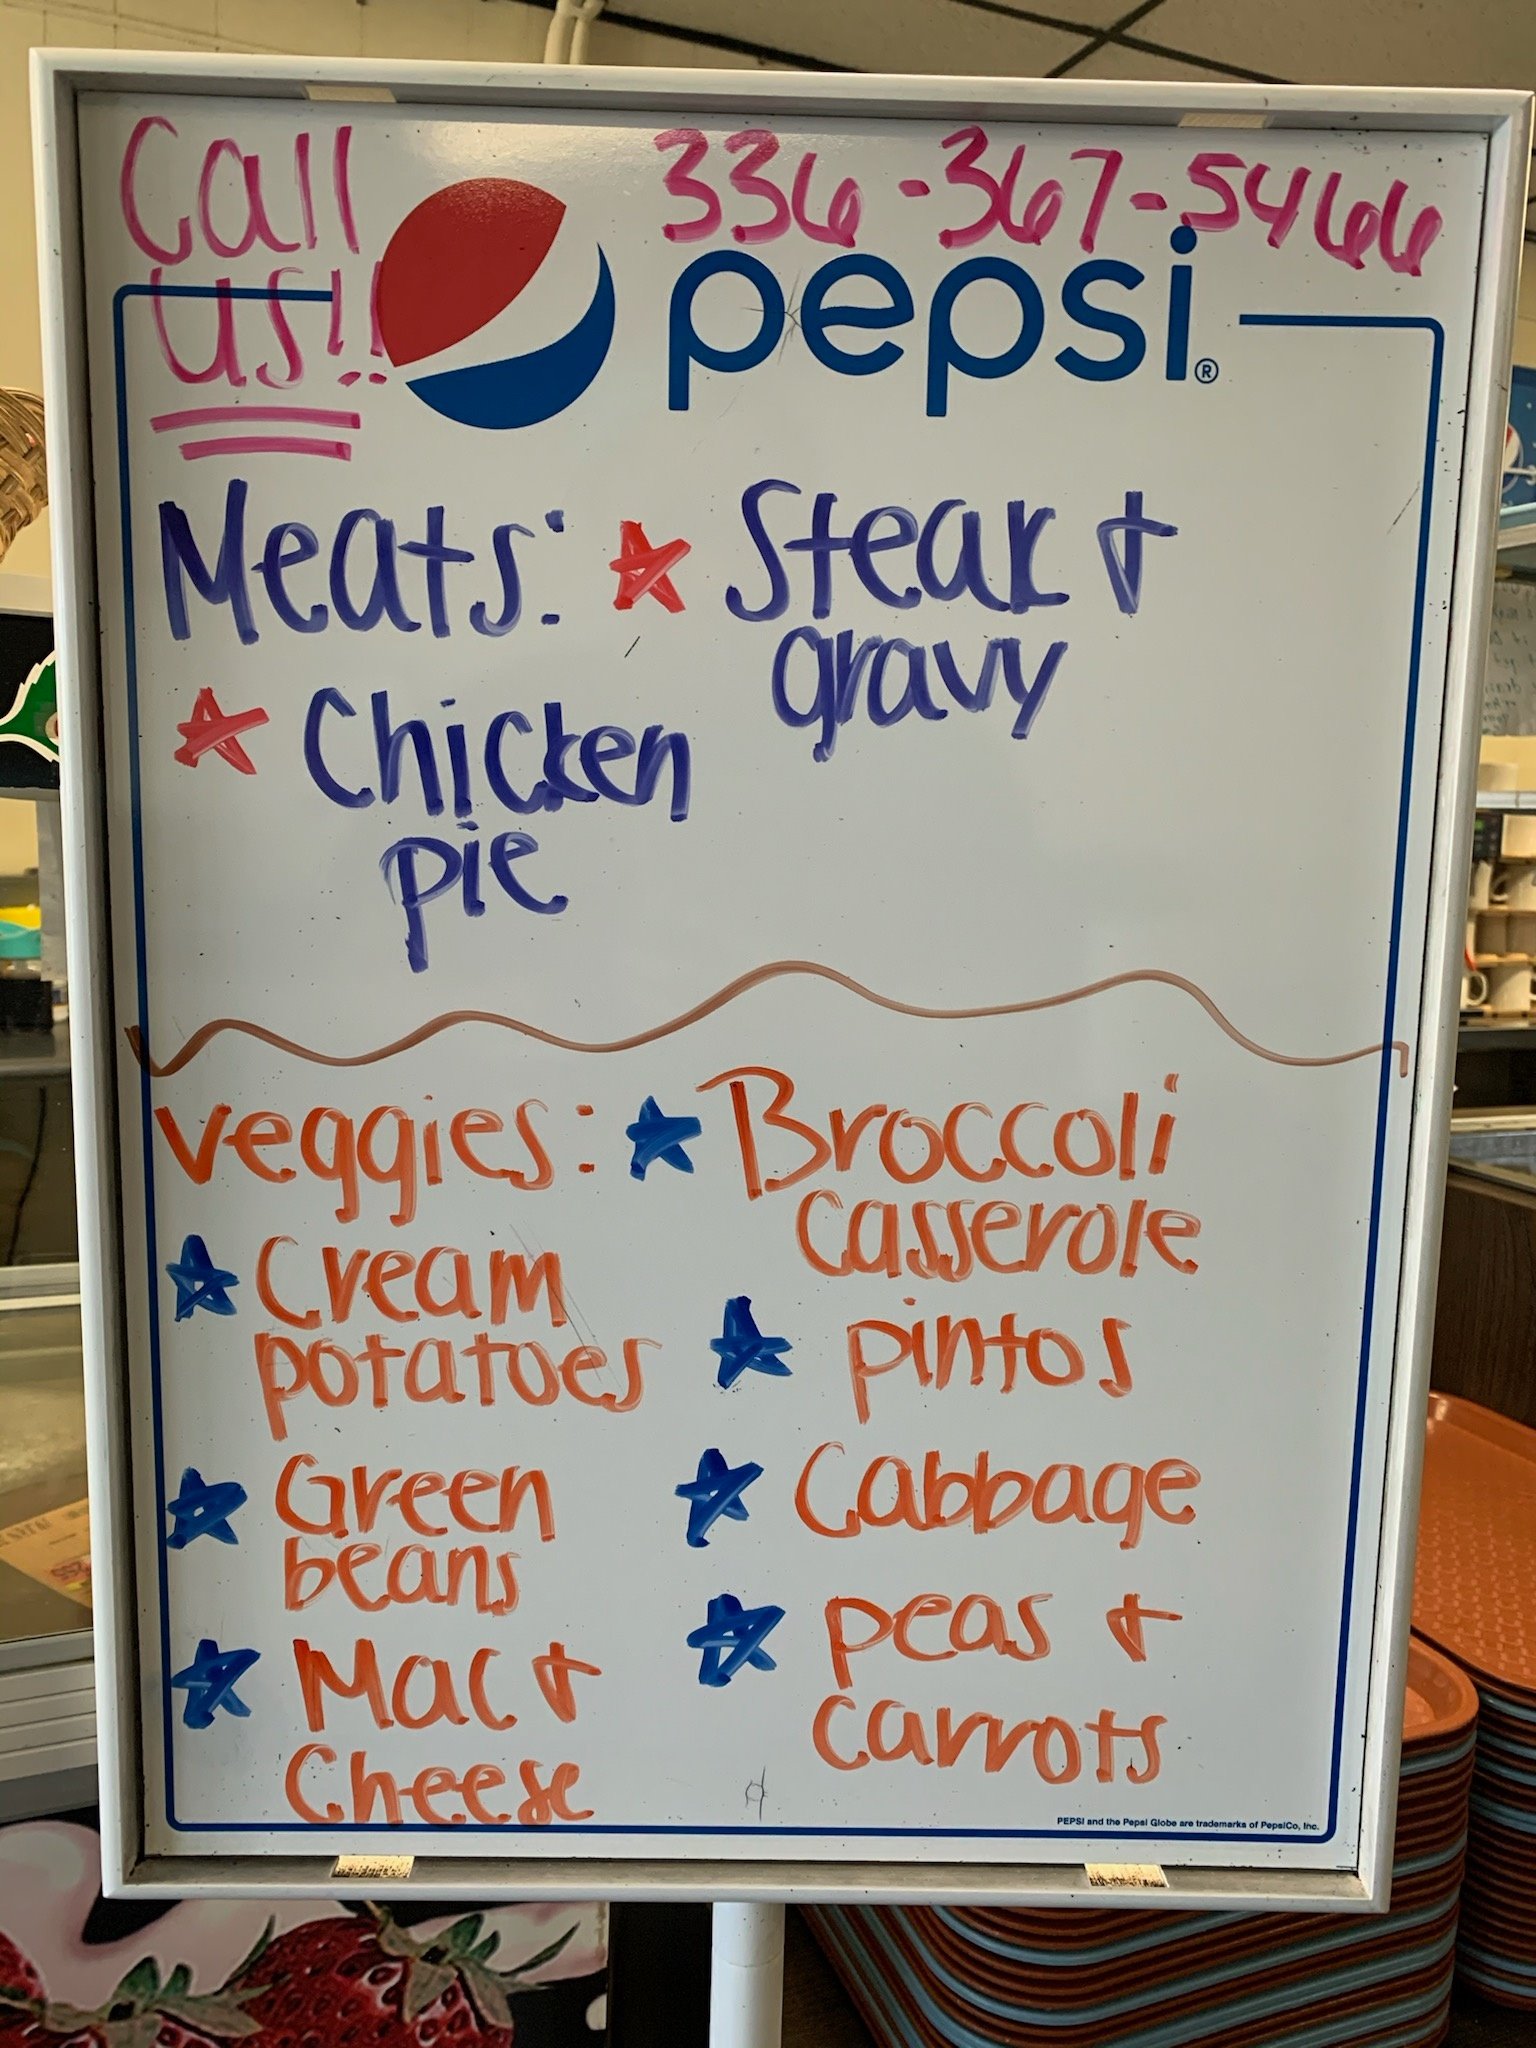 Call
us!!
336-367-5466
pepsi®
Meats:
Steak &
gravy
Chicken
pie
Veggies:
Broccoli
Casserole
Cream
potatoes
pintos
Green
beans
Cabbage
Mac &
Cheese
peas &
carrots
PEPSI and the Pepsi Globe are trademarks of PepsiCo, Inc.